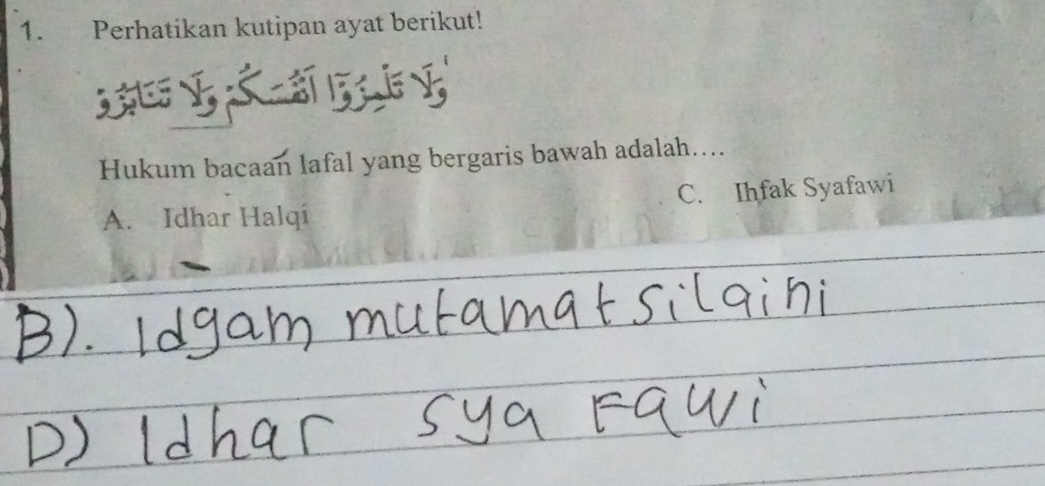 1. Perhatikan kutipan ayat berikut!
وَلَا تَلْمِزُوْٓا اَنْفُسَكُمْ وَلَا تَنَابَزُوْ
Hukum bacaan lafal yang bergaris bawah adalah....
A. Idhar Halqi
C. Ihfak Syafawi
B). Idgam mutamatsilaini
D) Idhar sya Fawi